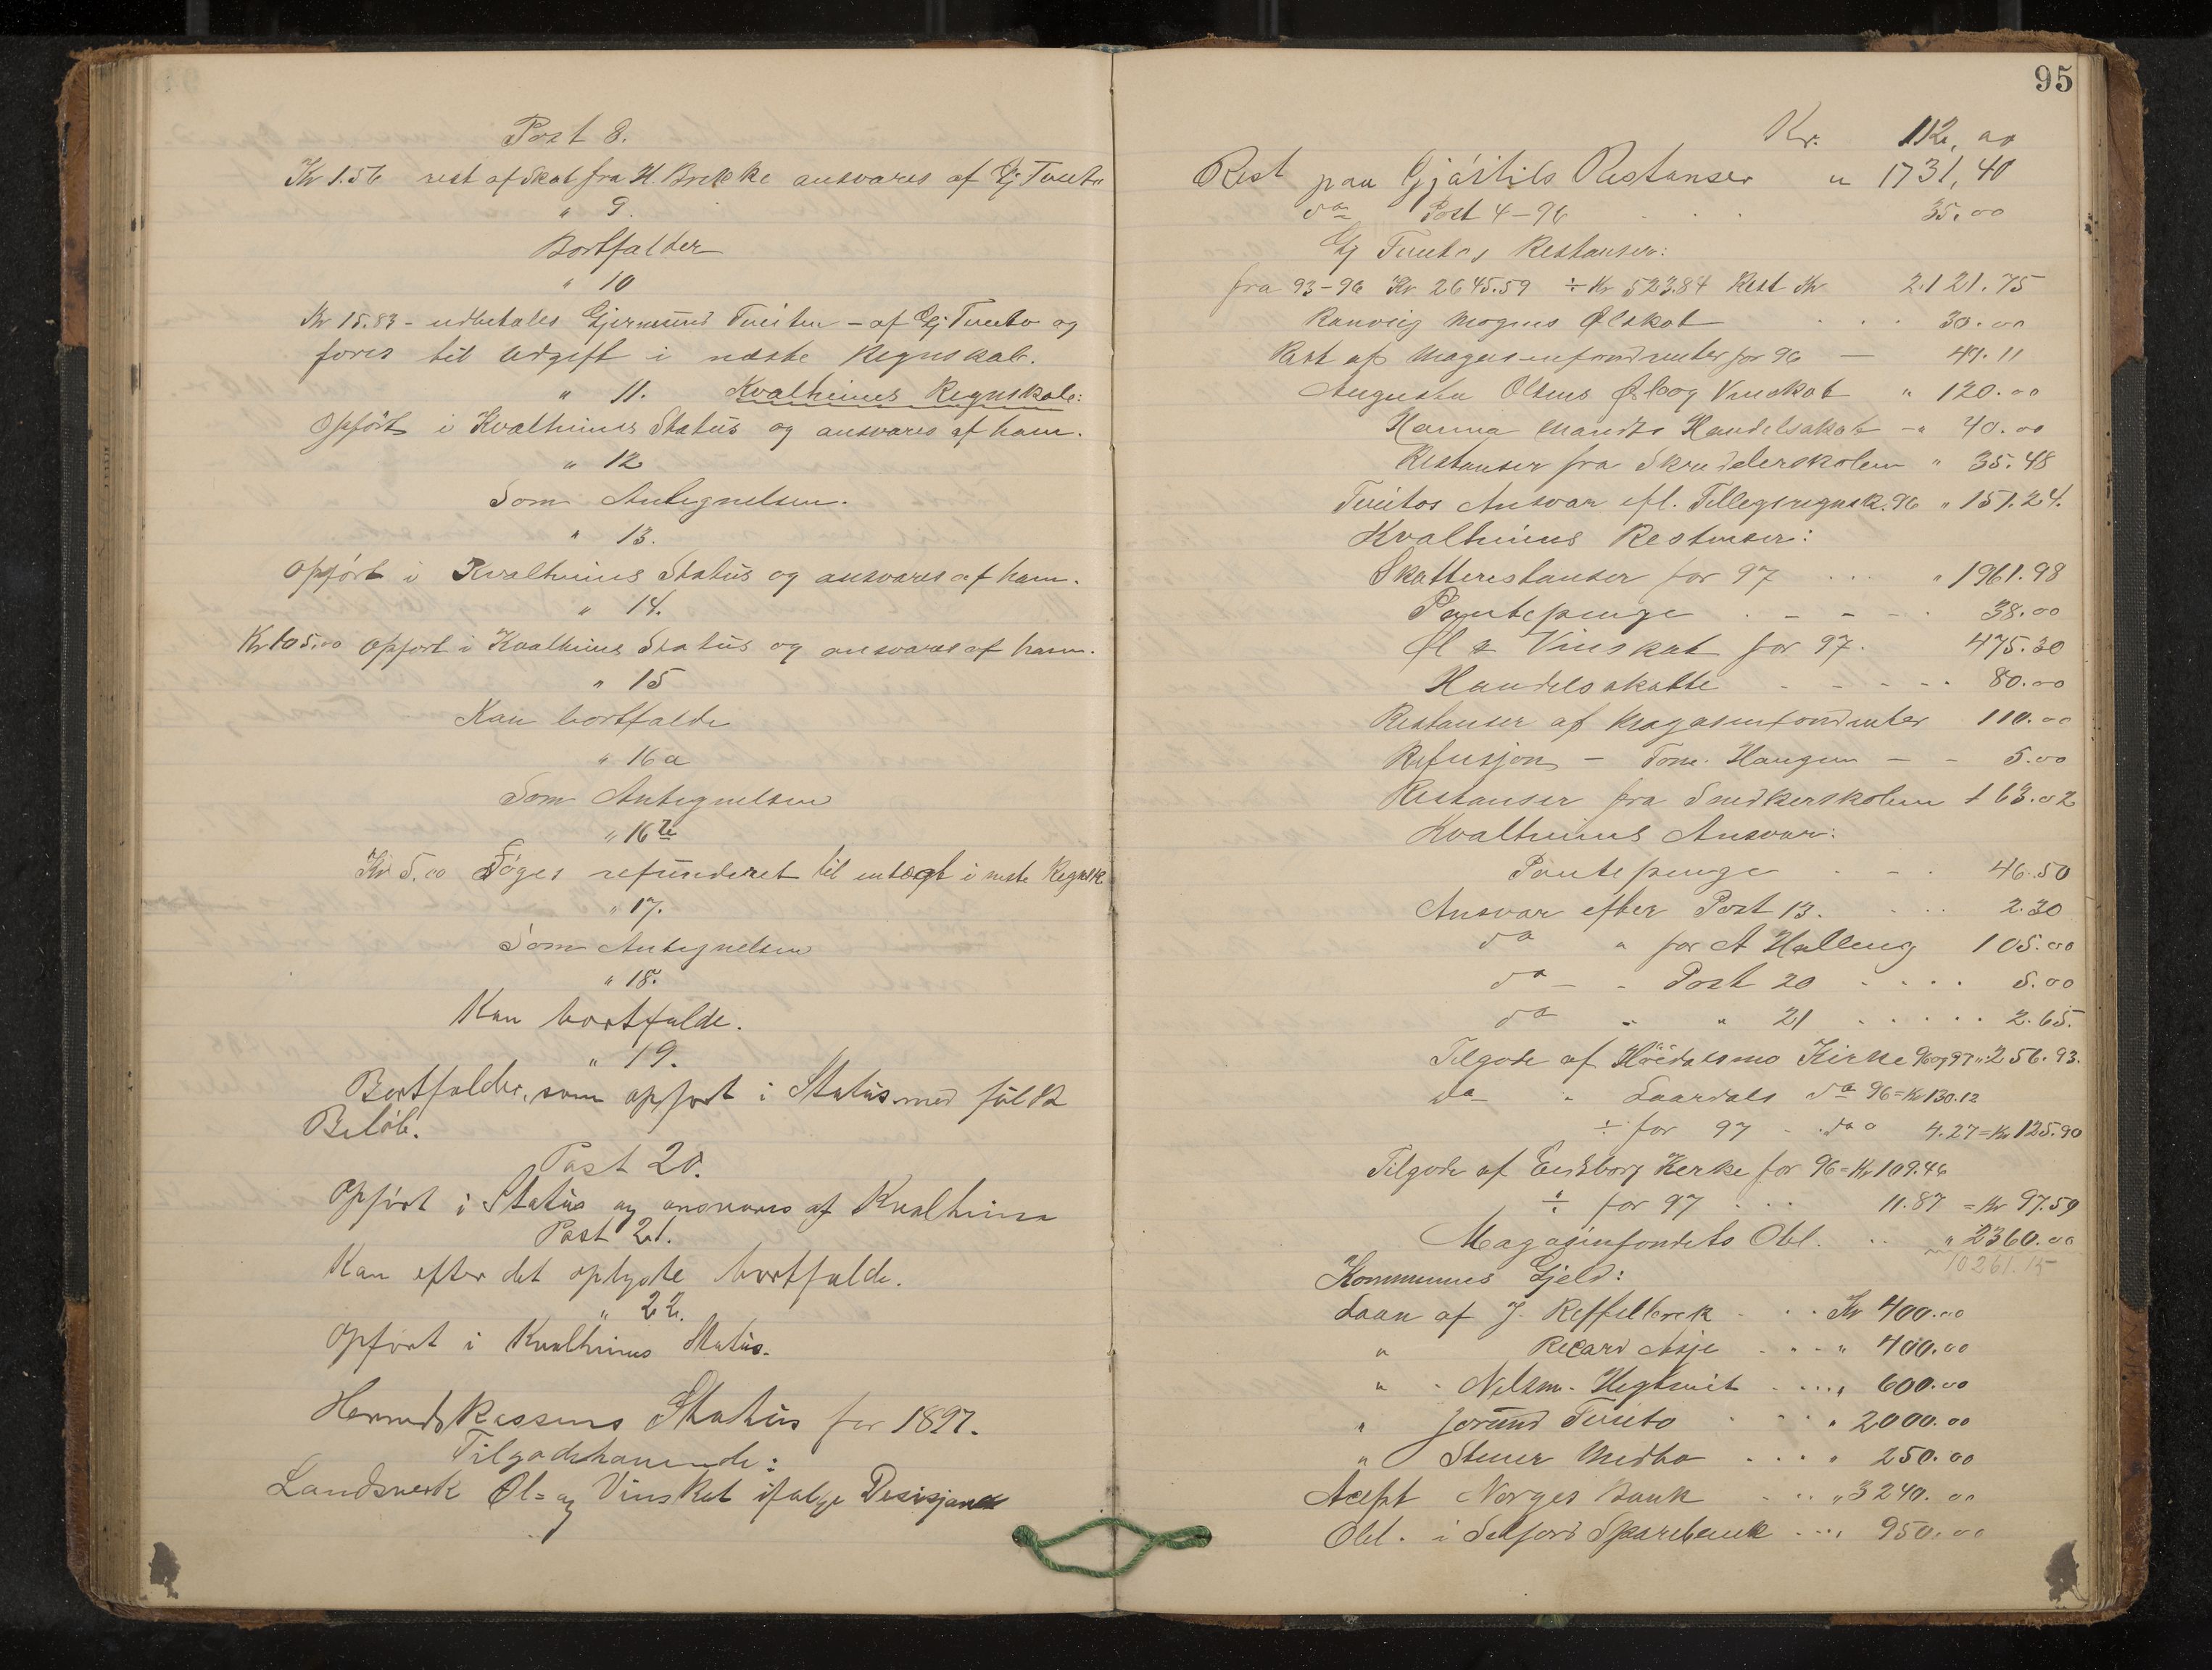 Post 8.
Kr 1.56 rest af Skat fra H. Brekke ansvares af Gj Tveito
" 9.
Bortfalder
" 10
Kr 15.83 - udbetales Gjermund Tveiten - af Gj Tveito og
føres til Udgift i næste Regnskab.
" 11. Kvalheims Regnskab:
Opført i Kvalheims Status og ansvares af ham.
" 12
Som Antegnelsen.
" 13.
Opført i Kvalheims Status og ansvares af ham.
" 14.
Kr 105.00 opført i Kvalheims Status og ansvares af ham.
" 15
Kan bortfalde
" 16 a
Som Antegnelsen
" 16 b
Kr 5.00 søges refunderet til indtægt i neste Regnsk.
" 17.
Som Antegnelsen
" 18.
Kan bortfalde.
" 19.
Bortfalder, som opført i Status med fuldt
Beløb.
Post 20.
Opført i Status og ansvares af Kvalheim
Post 21.
Kan efter det oplyste bortfalde.
" 22.
Opført i Kvalheims Status.
Herredskassens Status for 1897.
Tilgodehavende:
Landsverk Øl- og Vinskat ifølge Desisjon
95
Kr. 112,00
Rest paa Gjástils Restanser " 1731,40
do Post 4-96 . . . 35.00
Gj Tveitos Restanser:
fra 93-96 Kr 2645.59 ÷ Kr 523.84 Rest Kr 2121.75
Ranveig Mognes Ølskat . . . 30.00
Rest af Magasinfondrenter for 96 — 49.11
Augusta Olsens Øl og Vinskat " 120.00
Hanna Mandts Handelsskat - " 40.00
Restanser fra Skredderskolen " 35.48
Tveitos Ansvar efl. Tillegsregnsk. 96 " 151.24.
Kvalheims Restanser:
Skatterestanser for 97 . . . " 1961.98
Pantepenge . - - - . 38.00
Øl & Vinskat for 97. 475.30
Handelsskatte - - - - - 80.00
Restanser af Magasinfondrenter 110.00
Refusjon - Tone Haugen - - 5.00
Restanser fra Snedkerskolen 163.02
Kvalheims Ansvar:
Pantepenge . - . 46.50
Ansvar efter Post 13. . . . 2.30
do " for A Halling 105.00
do - " Post 20 . . . . 5.00
do " " 21 . . . . . 2.65.
Tilgode af Høidalsmo Kirke 96 og 97 " 256.93.
do " Laardals do 96 = Kr 130.12
÷ for 97 . . do 4.27 = Kr 125.90
Tilgode af Eidsborg Kerke for 96 = Kr 109.46
÷ for 97 . . . 11.87 = Kr 97.59
Magasinfondets Obl. . . " 2360.00
10261.15
Kommunens Gjeld:
Laan af J. Reffelbrek . . . Kr 400.00
" Recard Asje . . . " 400.00
" - Nelsm. Hegtveit . . . " 600.00
" Jorund Tveito . . . " 2000.00
" Stener Medbø . . . . " 250.00
Acept Norges Bank . . . " 3240.00
Obl. i Seljord Sparebank . . . " 950.00